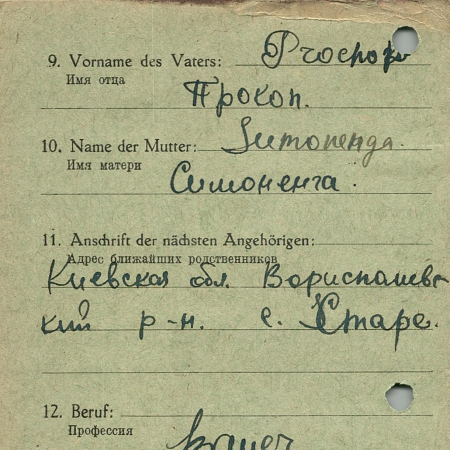 9. Vorname des Vaters:
Имя отца
Прокоп.
10. Name der Mutter:
Имя матери
Симоненга.
11. Anschrift der nächsten Angehörigen:
Адрес ближайших родственников
Киевская обл. Ворисполевс
кий р-н. с. Старе.
12. Beruf:
Профессия